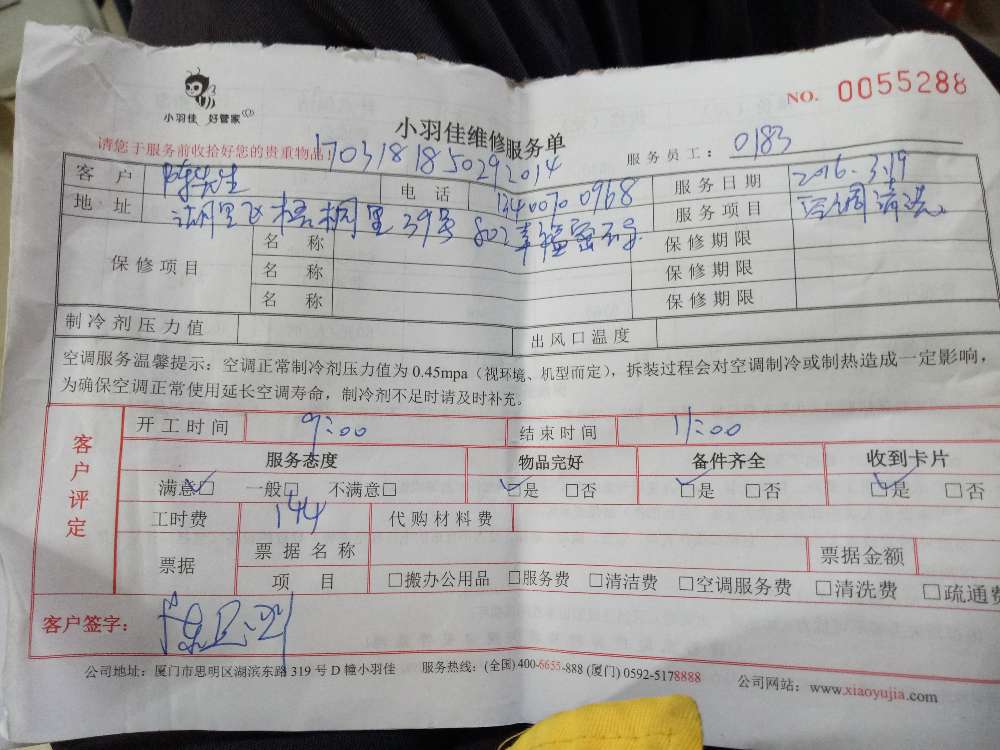 小羽佳 好管家
NO. 0055288
小羽佳维修服务单
请您于服务前收拾好您的贵重物品！
703181850292014
服务员工： 0183
客户 陈先生 电话 服务日期 2016.3.19
地址 梧桐里39号 802 服务项目 空调清洗
保修项目 名称 保修期限
名称 保修期限
名称 保修期限
制冷剂压力值 出风口温度
空调服务温馨提示：空调正常制冷剂压力值为 0.45mpa（视环境、机型而定），拆装过程会对空调制冷或制热造成一定影响，
为确保空调正常使用延长空调寿命，制冷剂不足时请及时补充。
客户评定
开工时间 9:00 结束时间 11:00
服务态度 物品完好 备件齐全 收到卡片
满意☑ 一般□ 不满意□ ☑是 □否 ☑是 □否 ☑是 □否
工时费 144 代购材料费
票据 票据名称 票据金额
项目 □搬办公用品 □服务费 □清洁费 □空调服务费 □清洗费 □疏通费
客户签字：
公司地址：厦门市思明区湖滨东路 319 号 D 幢小羽佳 服务热线：(全国) 400-6655-888 (厦门) 0592-5178888 公司网站：www.xiaoyujia.com